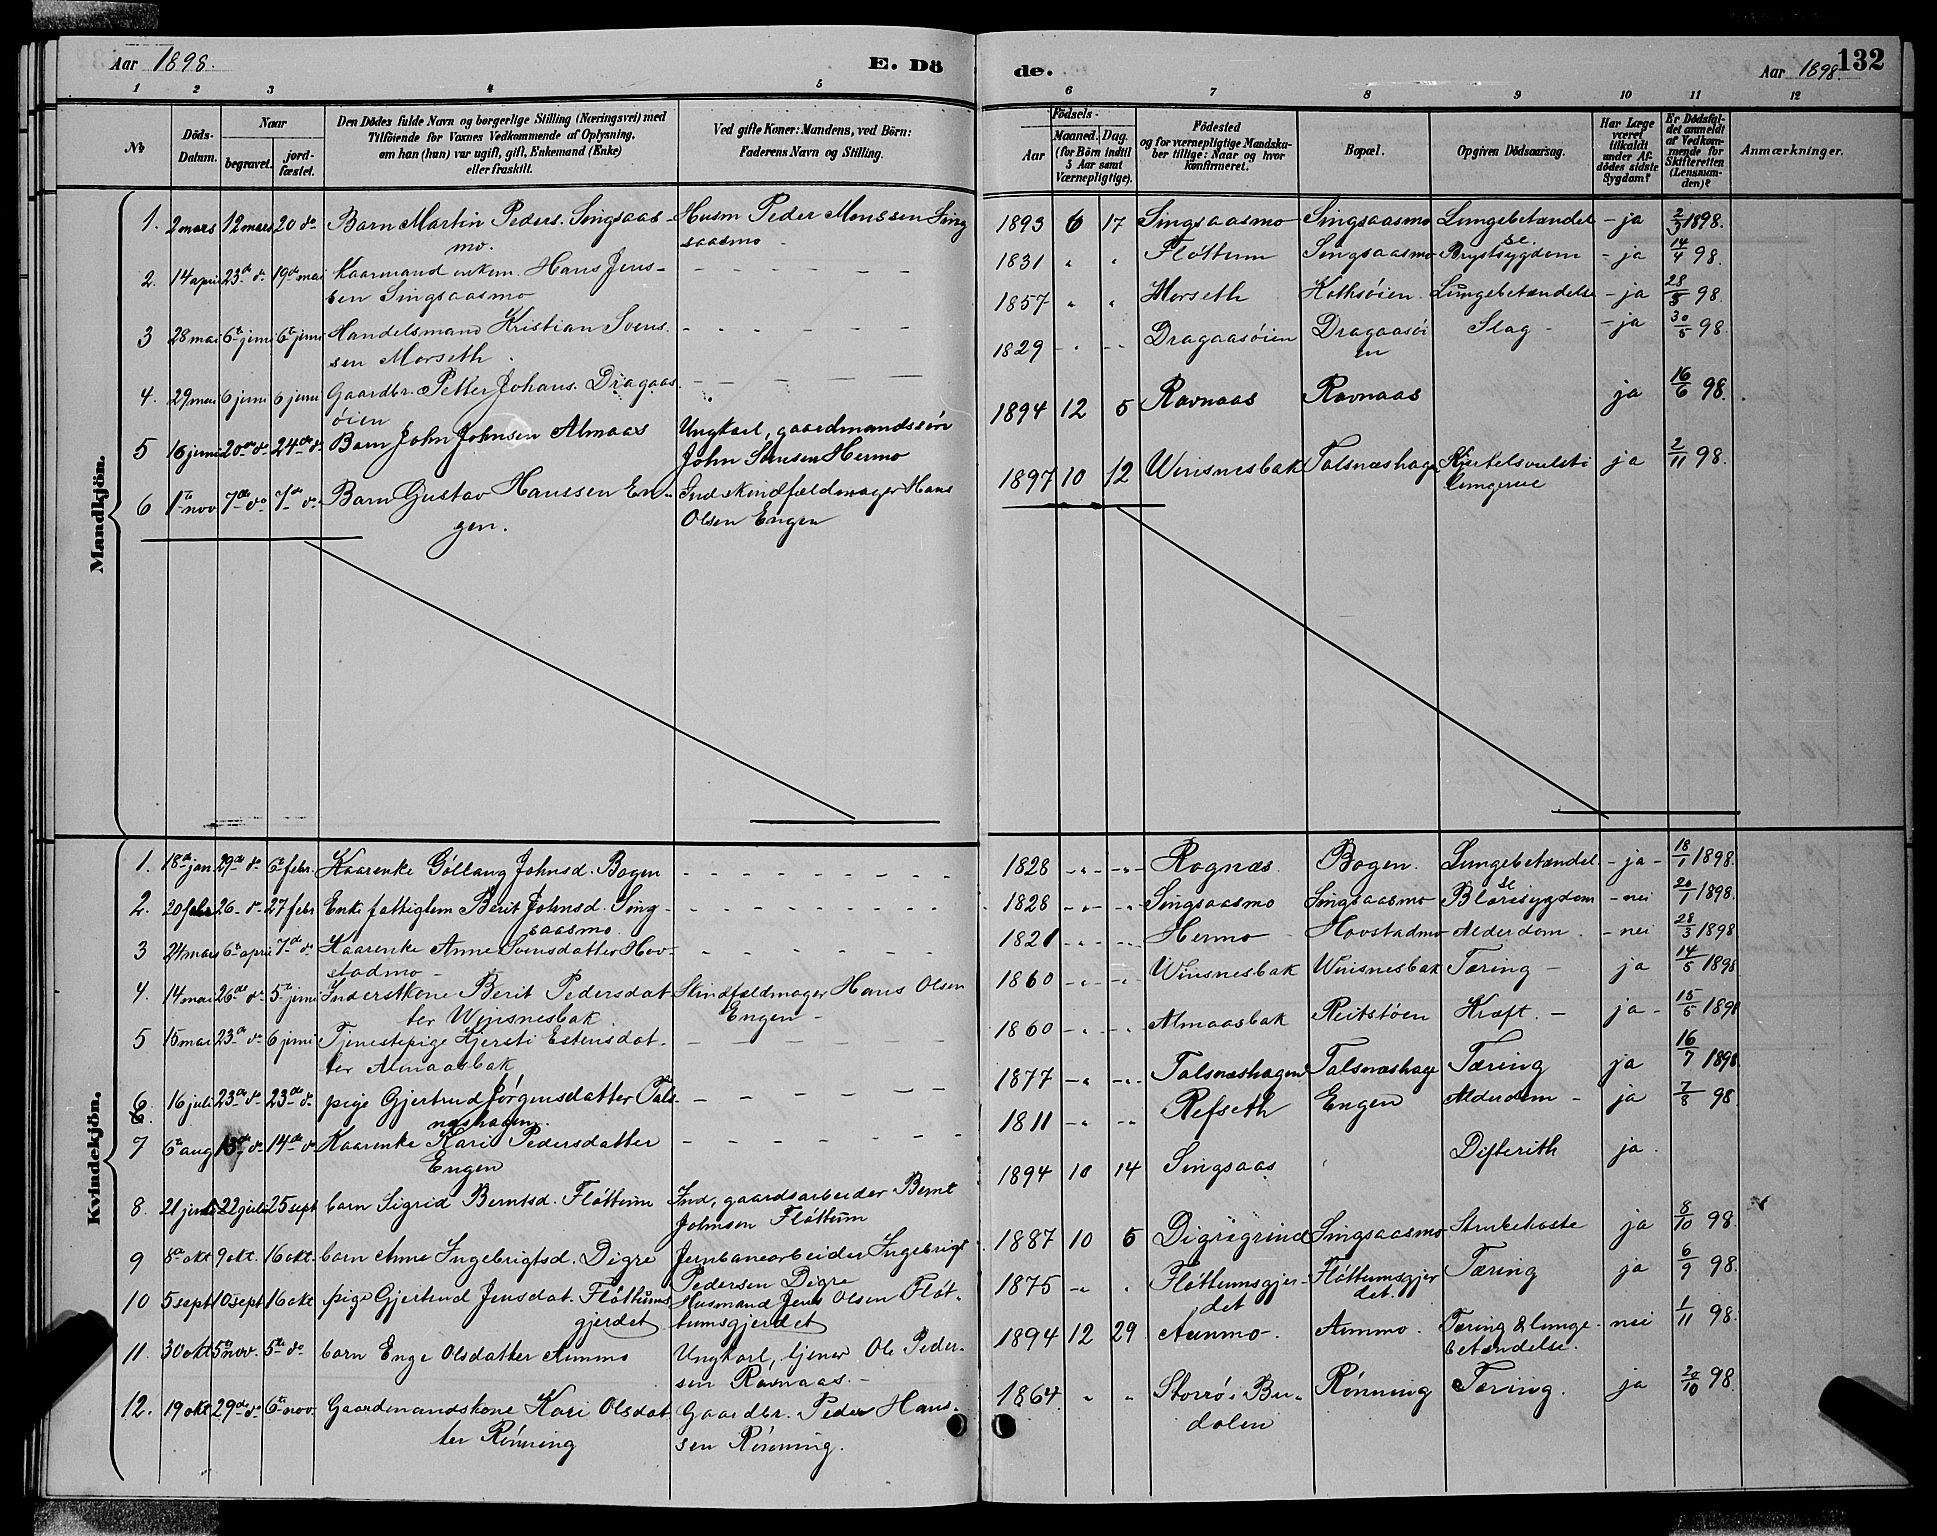 Aar 1898.
E. Dö
de.
Aar 1898.
132
1 2 3 4 5
6 7 8 9 10 11 12
№
Döds-
Datum.
Naar
begravet.
jord-
fæstet.
Den Dödes fulde Navn og borgerlige Stilling (Næringsvei) med
Tilföiende for Voxnes Vedkommende af Oplysning,
om han (hun) var ugift, gift, Enkemand (Enke)
eller fraskilt.
Ved gifte Koner: Mandens, ved Börn:
Faderens Navn og Stilling.
Födsels-
Aar
Maaned. Dag.
(for Börn indtil
5 Aar samt
Værnepligtige).
Födested
og for værnepligtige Mandska-
ber tillige: Naar og hvor
konfirmeret.
Bopæl.
Opgiven Dödsaarsag.
Har Læge
været
tilkaldt
under Af-
dödes sidste
Sygdom?
Er Dödsfal-
det anmeldt
af Vedkom-
mende for
Skifteretten
(Lensman-
den)?
Anmærkninger.
Mandkjön.
1. 2 mars 12 mars 20 do Barn Martin Peders. Singsaas- Husm Peder Monssen Sing
mo. saasmo -
1893 6 17 Singsaasmo Singsaasmo Lungebetændel - ja 2/3 1898.
se.
2. 14 april 23de do 19de mai Kaarmand enkem. Hans Jens-
sen Singsaasmo
1831 " " Flöttum Singsaasmo Brystsygdom - ja 14/4 98.
3 28 mai 6te juni 6te juni Handelsmand Kristian Svens
sen Morseth.
1857 " " Morseth Kothsöien. Lungebetændelse - ja 28/5 98.
4. 29 mai 6 juni 6 juni Gaardbr. Petter Johans. Dragaas
öien
1829 - " - Dragaasöien Dragaasöi Slag - - ja 30/5 98.
en
5 16 juni 20de do 24de do Barn John Johnsen Almaas Ungkarl, gaardmandssön
John Simsen Hermo
1894 12 5 Ravnaas Ravnaas ja 16/6 98.
6 1te nov 7de do 7de do Barn Gustav Hanssen En- Ind skindfældmager Hans
gen. Olsen Engen
1897 10 12 Winsnesbak Talsnæshage Kjertelsvulst i ja 2/11 98.
Kvindekjön.
1. 18de jan 29de do 6te febr. Kaarenke Göllaug Johnsd. Bogen
1828 Rognæs. Bogen. Lungebetændel - ja - 18/1 1898.
se
2. 20 febr 26 do 27 febr Enke fattiglem Berit Johnsd. Sing
saasmo
1828 Singsaasmo Singsaasmo Blæresygdom - nei 20/1 1898.
3 24 mars 6te april 7de do Kaarenke Anne Svensdatter Hov-
stadmo -
1821 Hermo - Hovstadmo Alderdom. - nei 28/3 1898
4. 14 mai 26de do 5te juni Inderstkone Berit Pedersdat Skindfældmager Hans Olsen
ter Winsnesbak Engen -
1860 Winsnesbak Winsnesbak Tæring - ja 14/5 1898
5 15 mai 23de do 6 juni Tjenestepige Kjersti Estensdat.
ter Almaasbak
1860 Almaasbak Reitstöen Kræft. - ja - 15/5 1898
6 16 juli 23de do 23de do pige Gjertrud Jörgensdatter Tals
næshagen.
1877 Talsnæshagen Talsnæshage Tæring ja 16/7 1898
7 6te aug 13de do 14de do Kaarenke Kari Pedersdatter
Engen
1811 Refseth Engen Alderdom - ja 7/8 98.
8. 21 juni 22 juli 25 sept barn Sigrid Berntsd. Flöttum Ind, gaardsarbeider Bernt
Johnsen Flöttum
1894 10 14 Singsaas Difterith ja.
9 8de okt 9 okt. 16 okt. barn Anne Ingebrigtsd. Digre Jernbanearbeider Ingebrigt
Pedersen Digre
1887 10 5 Digregrind Singsaasmo Strubehoste ja 8/10 98.
10 5 sept 10 sept 16 okt pige Gjertrud Jensdat. Flöttums Husmand Jens Olsen Flöt-
gjerdet tumsgjerdet
1875 Flöttumsgjer- Flöttumsgjer Tæring ja 6/9 98.
det det.
11. 30 okt 5te nov. 5te do barn Enge Olsdatter Aunmo Ungkarl, tjener Ole Peder-
sen Ravnaas. -
1894 12 29 Aunmo -. Aunmo. Tæring & lunge- nei 1/11 98.
betændelse.
12. 19 okt 29de do 6te nov. Gaardmandskone Kari Olsdat Gaardbr. Peder Hans-
ter Rönning sen Rönning.
1864 " " Storrö i Bu- Rönning Tæring. ja 20/10 98.
dalen